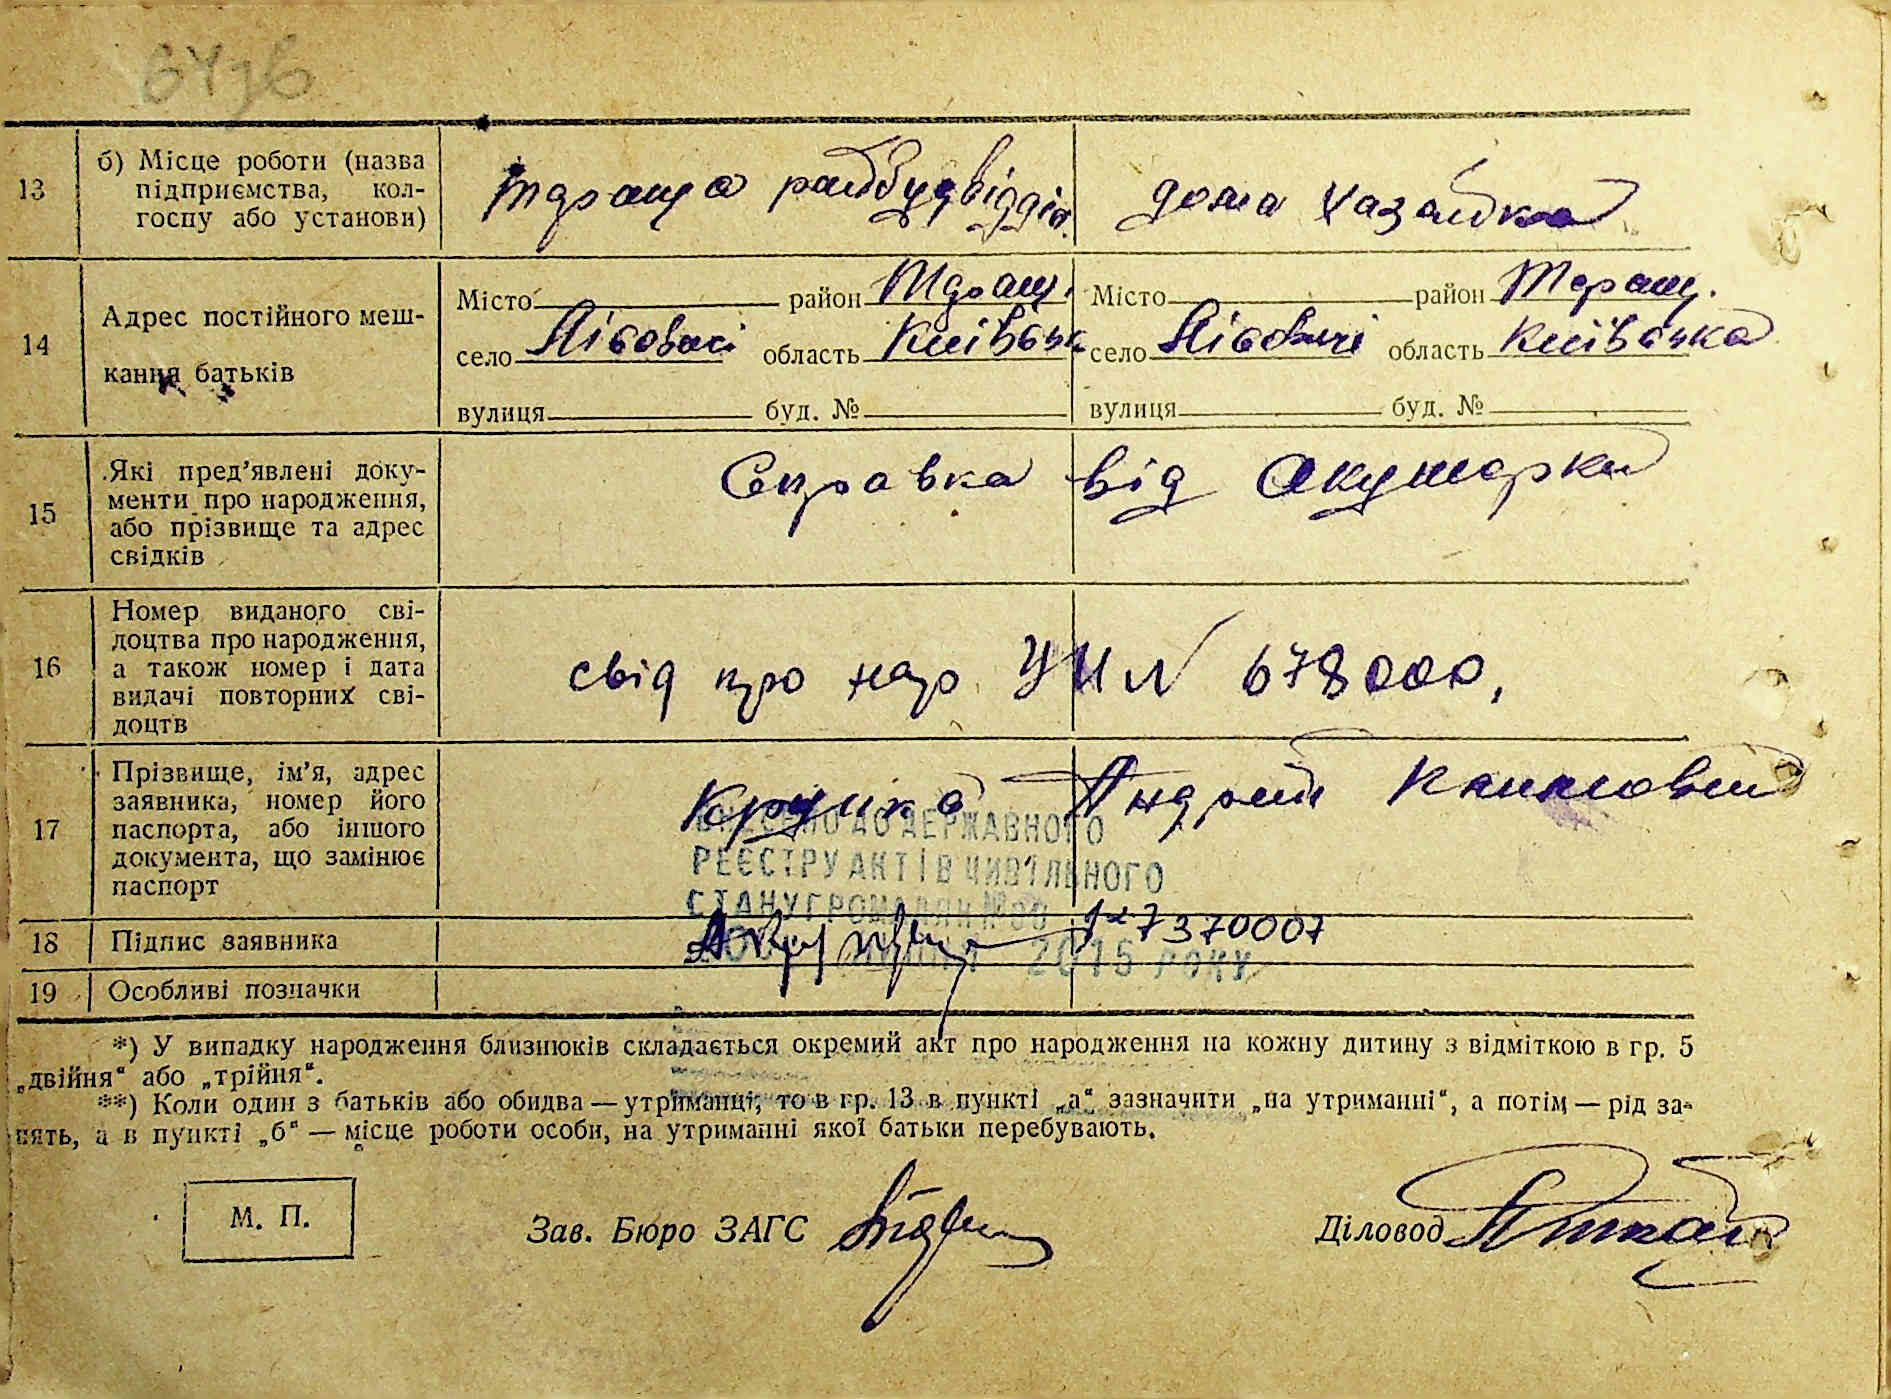 13
б) Місце роботи (назва
підприємства, кол-
госпу або установи)
Тараща райбудвідділ.
дома хазяйка
14
Адрес постійного меш-
кання батьків
Місто район Таращ.
село Лісовичі область Київська
вулиця буд. №
Місто район Таращ.
село Лісовичі область Київська
вулиця буд. №
15
Які пред’явлені доку-
менти про народження,
або прізвище та адрес
свідків
Справка від акушерки
16
Номер виданого сві-
доцтва про народження,
а також номер і дата
видачі повторних сві-
доцтв
свід про нар УН N 678000,
17
Прізвище, ім’я, адрес
заявника, номер його
паспорта, або іншого
документа, що замінює
паспорт
Андрій
ВНЕСЕНО ДО ДЕРЖАВНОГО
РЕЄСТРУ АКТІВ ЦИВІЛЬНОГО
СТАНУ ГРОМАДЯН
2015 РОКУ
18
Підпис заявника
7370007
19
Особливі позначки
*) У випадку народження близнюків складається окремий акт про народження на кожну дитину з відміткою в гр. 5
„двійня“ або „трійня“.
**) Коли один з батьків або обидва — утриманці, то в гр. 13 в пункті „а“ зазначити „на утриманні“, а потім — рід за-
нять, а в пункті „б“ — місце роботи особи, на утриманні якої батьки перебувають.
М. П.
Зав. Бюро ЗАГС
Діловод